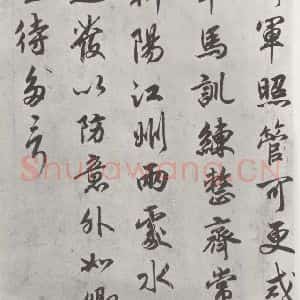 軍照管可更戒
馬訓練整齊常
陽江州兩處水
發以防意外如卿
待多言
Shufawang.CN